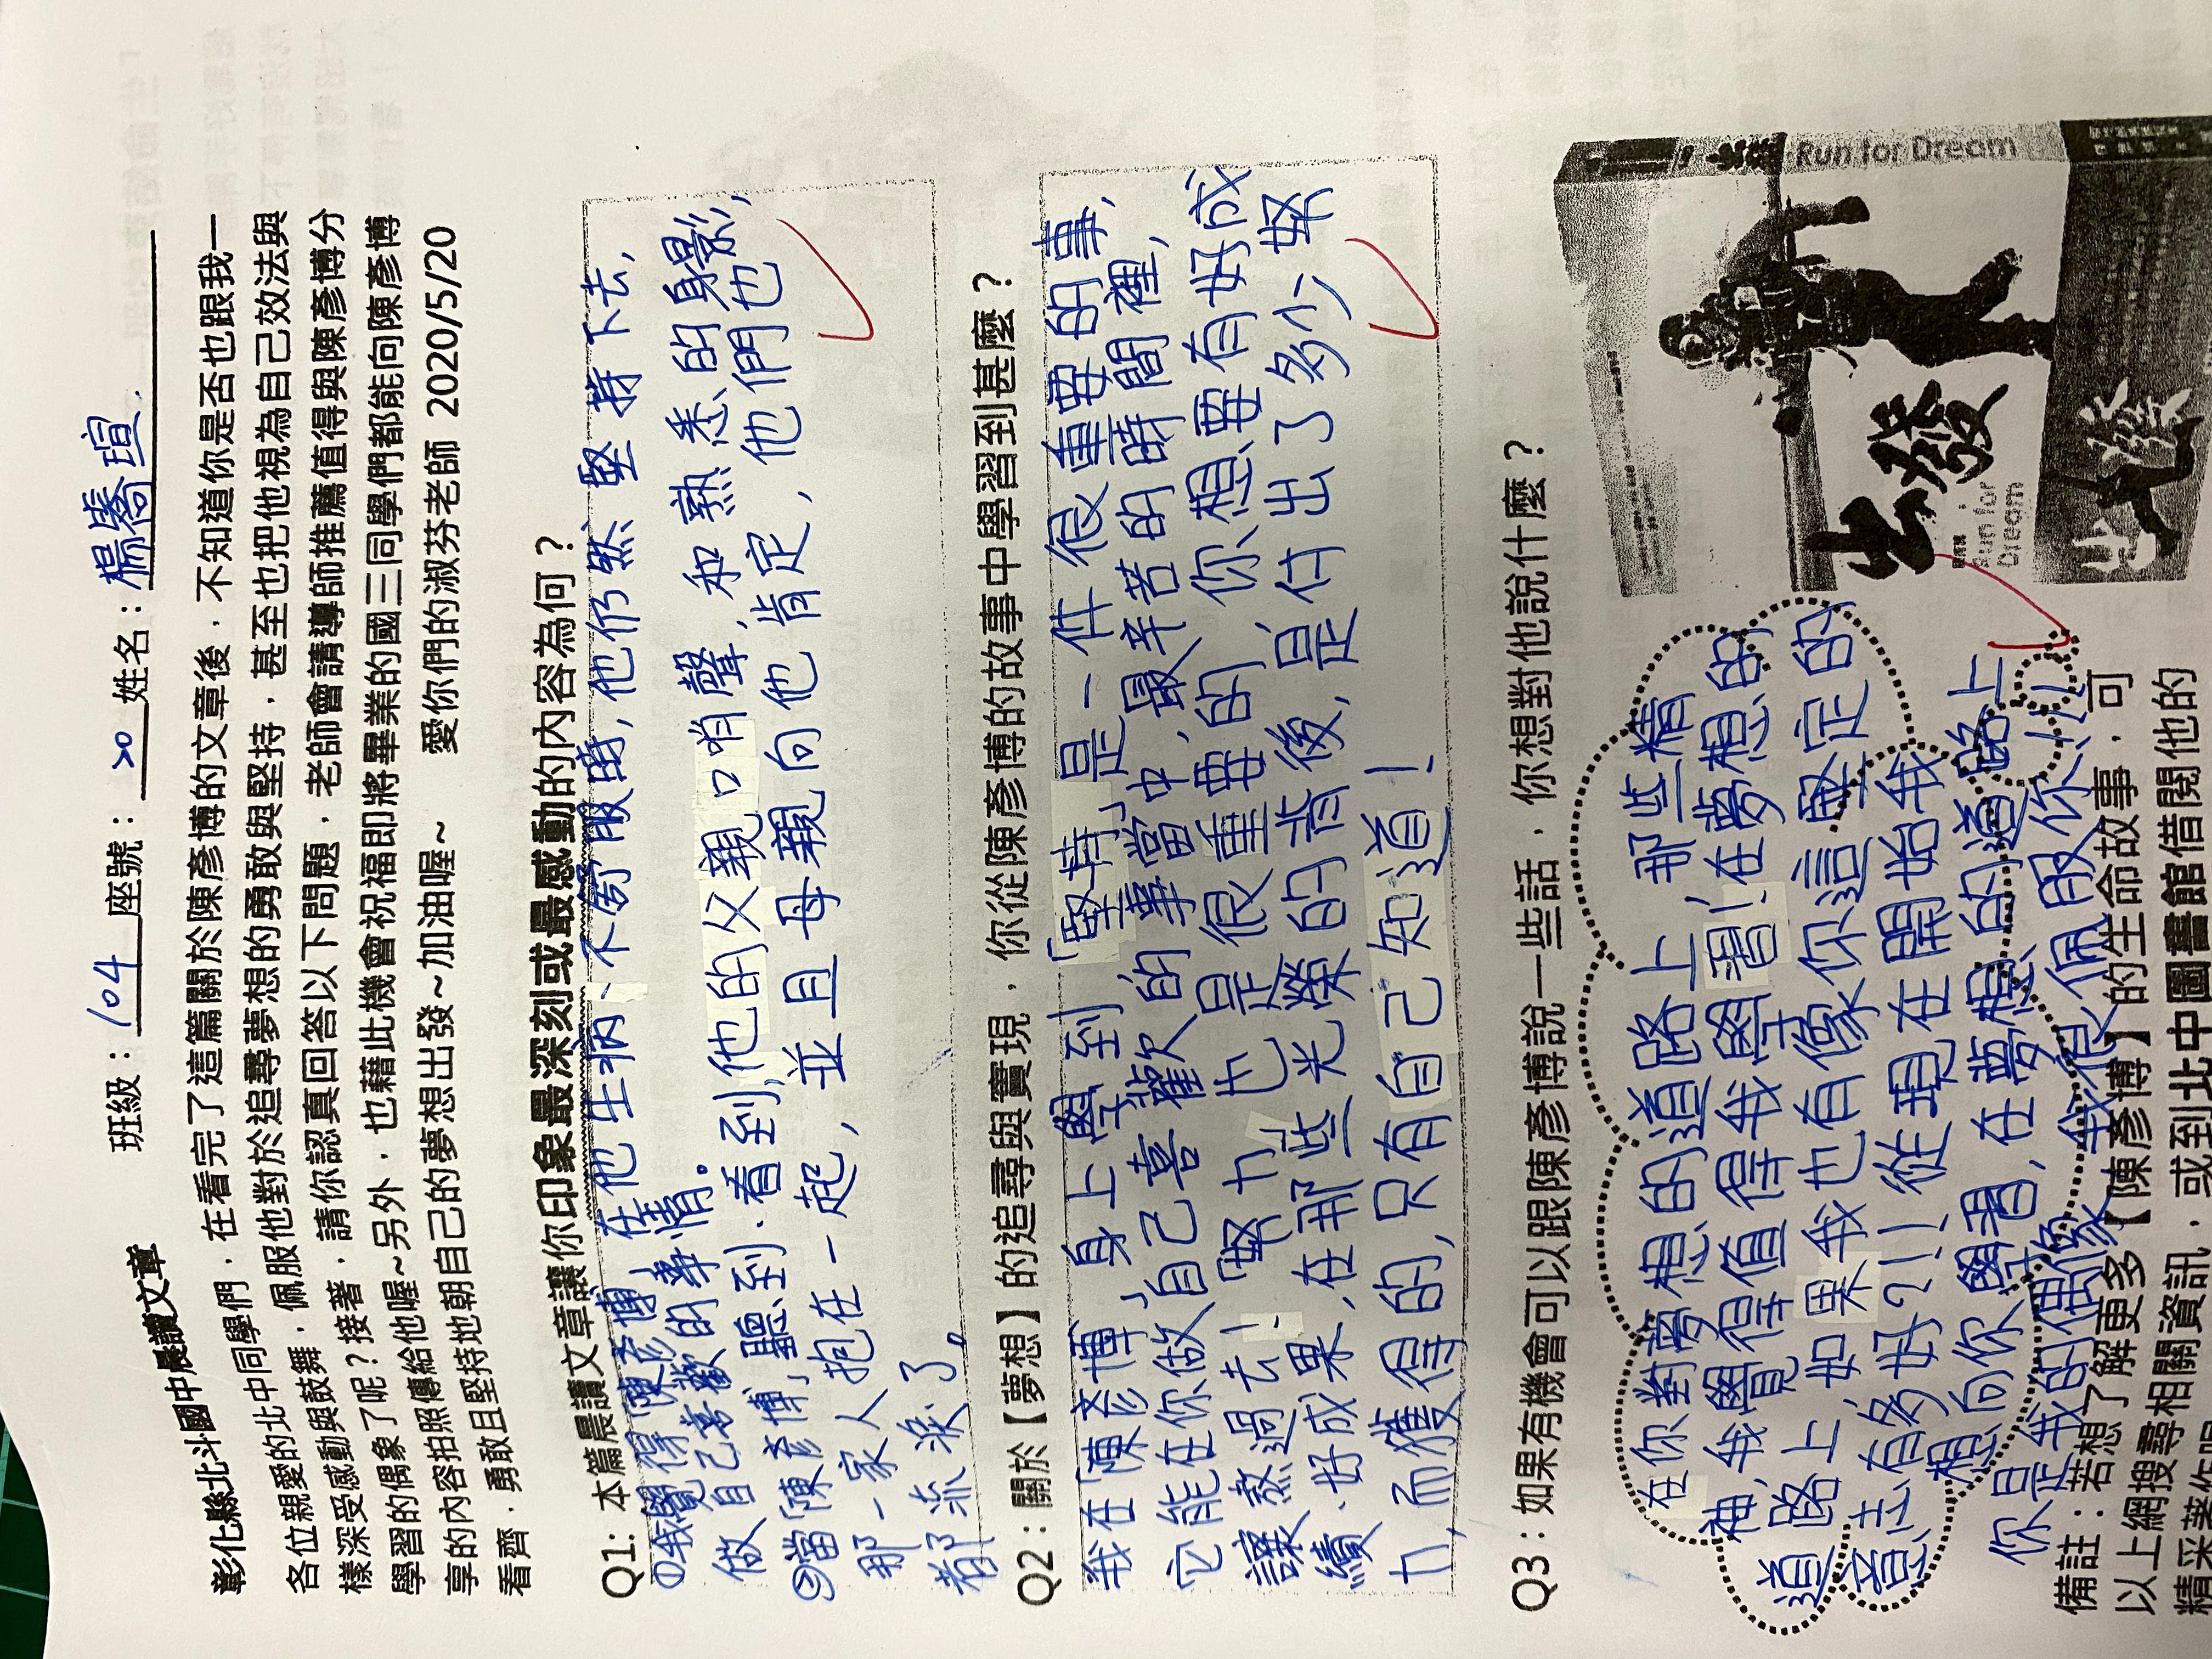 彰化縣北斗國中晨讀文章
班級：104 座號：20 姓名：楊驀瑄
各位親愛的北中同學們，在看完了這篇關於陳彥博的文章後，不知道你是否也跟我一
樣深受感動與鼓舞，佩服他對於追尋夢想的勇敢與堅持，甚至也把他視為自己效法與
學習的偶象了呢？接著，請你認真回答以下問題，老師會請導師推薦值得與陳彥博分
享的內容拍照傳給他喔~另外，也藉此機會祝福即將畢業的國三同學們都能向陳彥博
看齊，勇敢且堅持地朝自己的夢想出發~加油喔~ 愛你們的淑芬老師 2020/5/20
Q1：本篇晨讀文章讓你印象最深刻或最感動的內容為何？
①我覺得「陳彥博」在他生病、不舒服時，他仍然堅持下去，
做自己喜歡的事情。
②當「陳彥博」聽到、看到，他的父親口哨聲，和熟悉的身影，
那一家人抱在一起，並且母親向他肯定，他們也
都流淚了。
Q2：關於【夢想】的追尋與實現，你從陳彥博的故事中學習到甚麼？
我在「陳彥博」身上學到「堅持」是一件很重要的事，
它能在你做自己喜歡的事當中，最辛苦的瞬間裡，
讓熬過去！「努力」也是很重要的，你想要有好成
績、好成果，在那些光榮的背後，是付出了多少努
力，而獲得的，只有自己知道！
Q3：如果有機會可以跟陳彥博說一些話，你想對他說什麼？
在你對夢想的道路上，那些精
神，我覺得值得我學習！在夢想的
道路上，如果我也有像你這堅定的
意志，有多好？！！從現在開始我
想向你學習，在夢想的道路上
你是我的偶象，我很佩服你！！
出發
Run for Dream
Run for
Dream
出發
備註：若想了解更多【陳彥博】的生命故事，可
以上網搜尋相關資訊，或到北中圖書館借閱他的